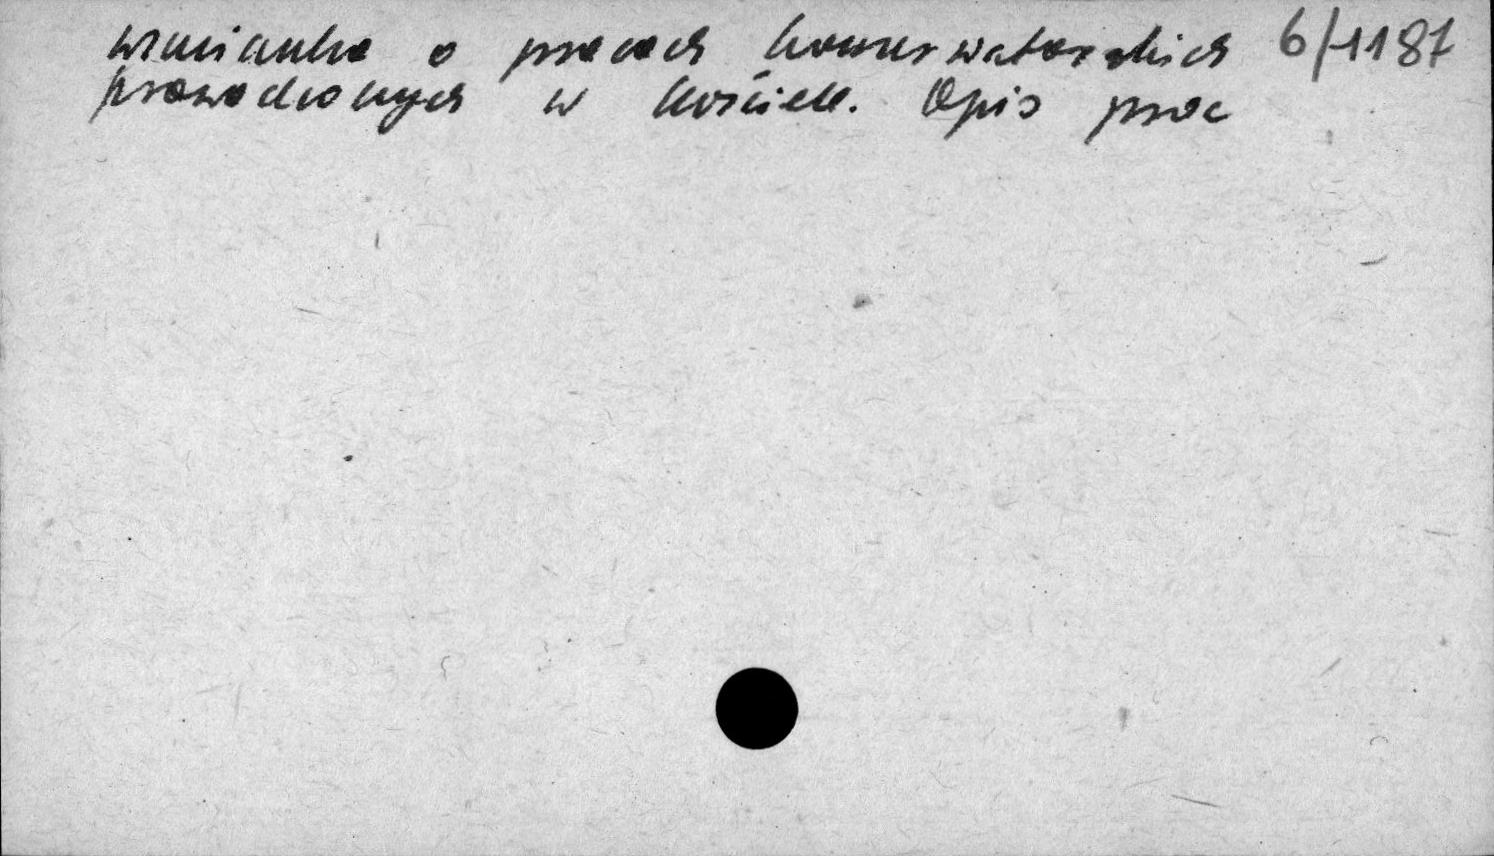 wzmianka o pracach konserwatorskich 6/1187
prowadzonych w kościele. Opis prac